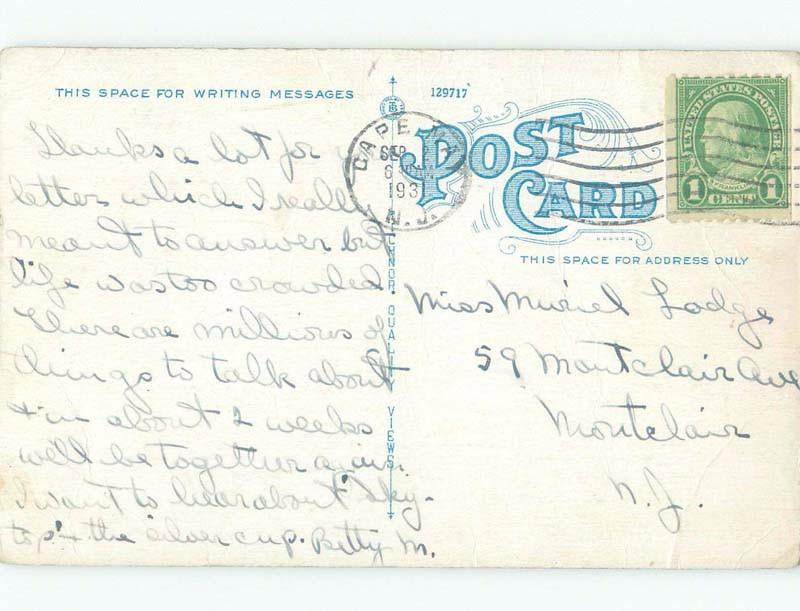 THIS SPACE FOR WRITING MESSAGES
129717
Thanks a lot for
letter which I really
meant to answer but
life was too crowded.
There are millions of
things to talk about
+ in about 2 weeks
we'll be together again.
I want to hear about "Sky-
top" + the silver cup. Betty M.
TICHNOR QUALITY VIEWS
CAPE MAY
SEP
6 PM
193
N.J.
POST CARD
UNITED STATES POSTAGE
FRANKLIN
1 CENT 1
THIS SPACE FOR ADDRESS ONLY
Miss Muriel Lodge
59 Montclair Ave
Montclair
N.J.